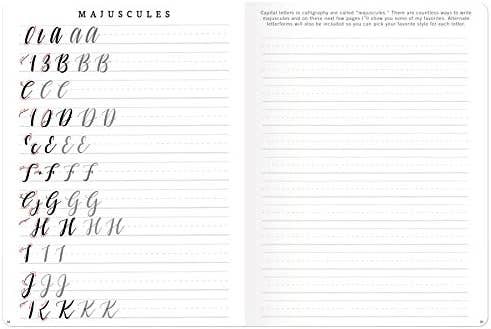 MAJUSCULES
A A A A
1 3 B B B
C C C
1 D D D D
c E E E
F F F
G G G G
H H H H
I I I
J J J
1 K K K K
Capital letters in calligraphy are called "majuscules." There are countless ways to write
majuscules and on these next few pages I'll show you some of my favorites. Alternate
letterforms will also be included so you can pick your favorite style for each letter.